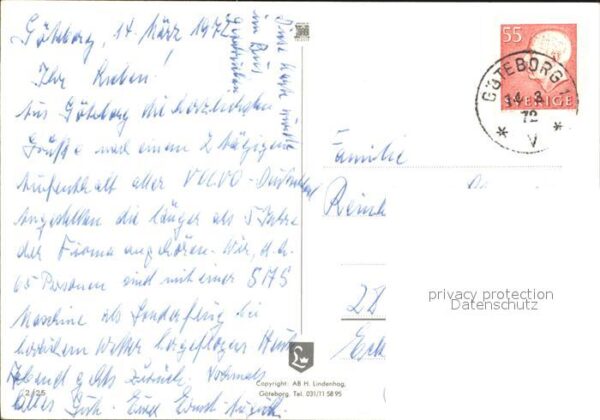 Göteborg, 14. März 1972
Ihr Lieben!
Aus Göteborg die herzlichsten
Grüße nach einem 2 tägigen
Aufenthalt aller VOLVO-Deutschland
Angestellten die länger als 5 Jahre
der Firma angehören. Wir, d.h.
65 Personen sind mit einer SAS
Maschine als Sonderflug bei
Wetter hergeflogen. Heute
Abend gehts zurück. Nochmals
alles Gute. Ernst-August
Diese Karte wurde
im Bus
geschrieben
55
SVERIGE
GÖTEBORG 1
14 3
72
V
Familie
28
privacy protection
Datenschutz
2/25
L
Copyright: AB H. Lindenhag,
Göteborg. Tel. 031/11 58 95